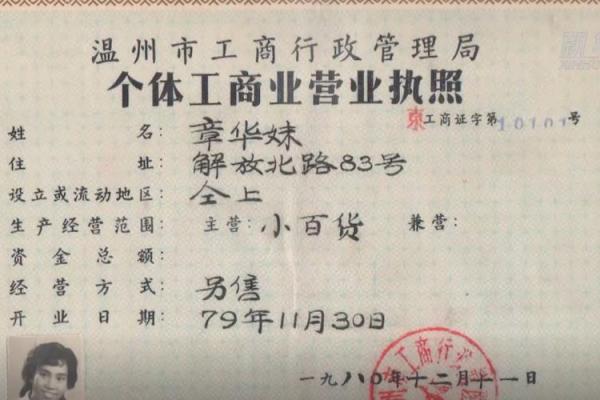 温州市工商行政管理局
个体工商业营业执照
东工商证字第10101号
姓名：章华妹
住址：解放北路83号
设立或流动地区：仝上
生产经营范围：主营：小百货 兼营：
资金总额：
经营方式：另售
开业日期：79年11月30日
工商行政
一九八〇年十二月十一日